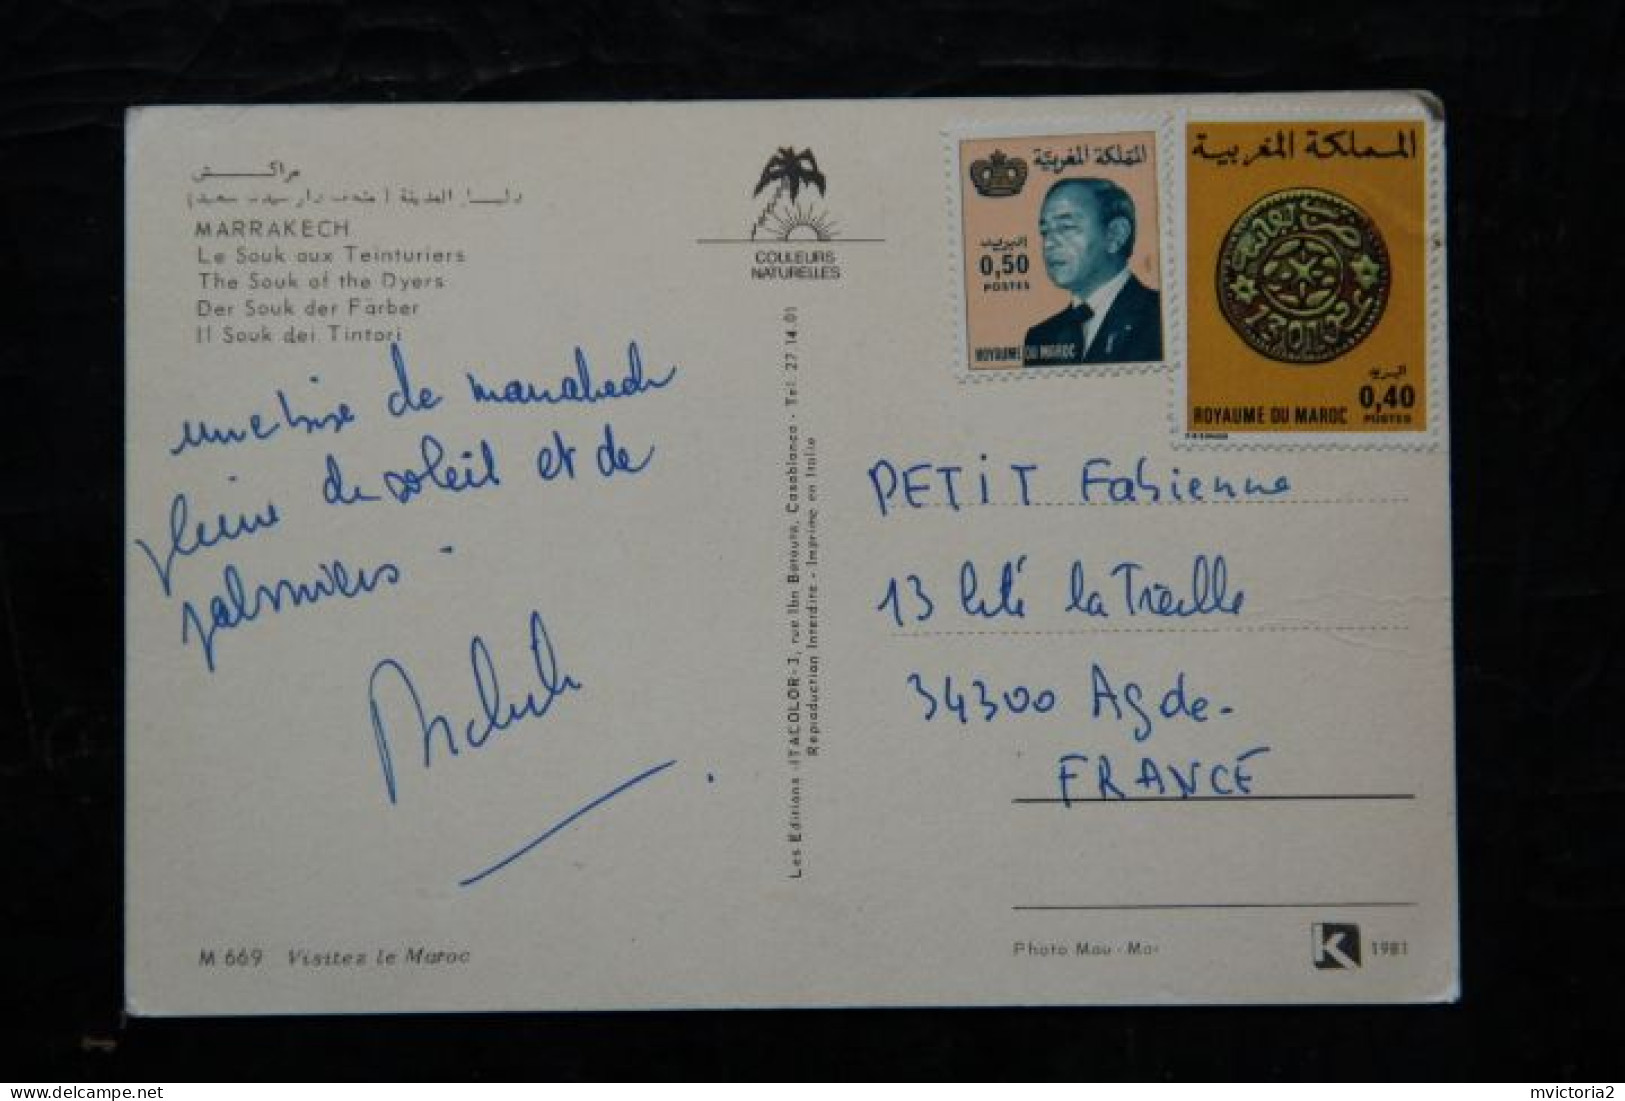 مراكش
MARRAKECH
Le Souk aux Teinturiers
The Souk of the Dyers
Der Souk der Färber
Il Souk dei Tintori
une bise de marrakech
pleine de soleil et de
palmiers.
M 669 Visitez le Maroc
COULEURS
NATURELLES
Les Editions ITACOLOR-3, rue Ibn Batouta, Casablanca - Tel. 27 14.01
Reproduction Interdite - Imprimé en Italie
المملكة المغربية
البريد
0,50
POSTES
ROYAUME DU MAROC
المملكة المغربية
البريد
0,40
POSTES
ROYAUME DU MAROC
PETIT Fabienne
13 Cité la Treille
34300 Agde-
FRANCE
Photo Mau-Mai
K 1981
delcampe.net
mvictoria2